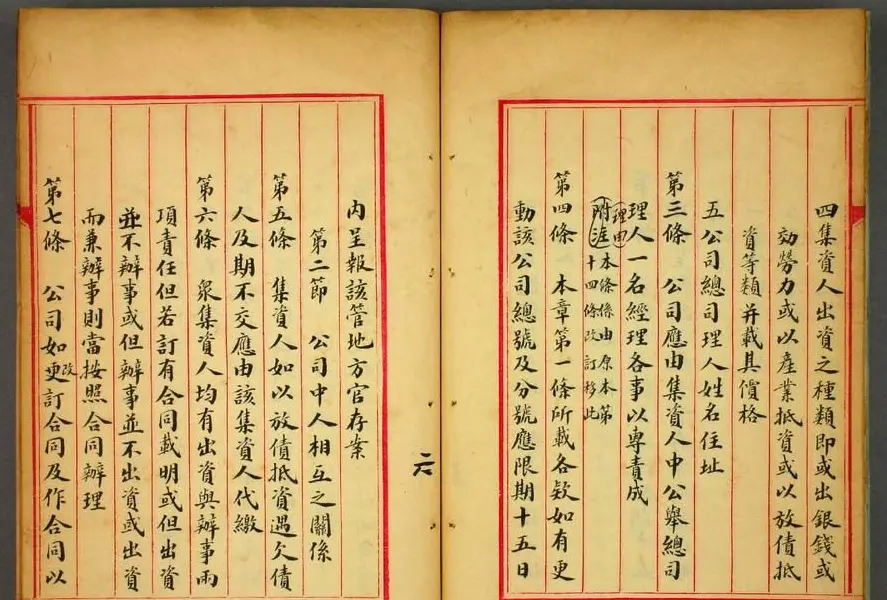 四集資人出資之種類即或出銀錢或
効勞力或以產業抵資或以放債抵
資等類并載其價格
五公司總司理人姓名住址
第三條 公司應由集資人中公舉總司
理人一名經理各事以專責成
理由
附注 本條係由原本第
十四條改訂移此
第四條 本章第一條所載各欵如有更
動該公司總號及分號應限期十五日
六
內呈報該管地方官存案
第二節 公司中人相互之關係
第五條 集資人如以放債抵資遇欠債
人及期不交應由該集資人代繳
第六條 衆集資人均有出資與辦事兩
項責任但若訂有合同載明或但出資
並不辦事或但辦事並不出資或出資
而兼辦事則當按照合同辦理
第七條 公司如更改訂合同及作合同以